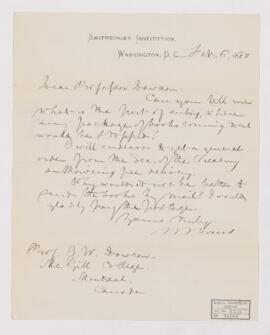 SMITHSONIAN INSTITUTION,
WASHINGTON, D.C. Feb. 6, 1880
Dear Professor Dawson
Can you tell me
what is the port of entry, where
any package of books coming west
would be stopped?
I will endeavor to get a general
order from the Sec. of the Treasury
authorizing free delivery.
Why would it not be better to
send the books by mail? I would
gladly pay the postage.
Yours truly
Prof. J. W. Dawson.
McGill College.
Montreal
Canada